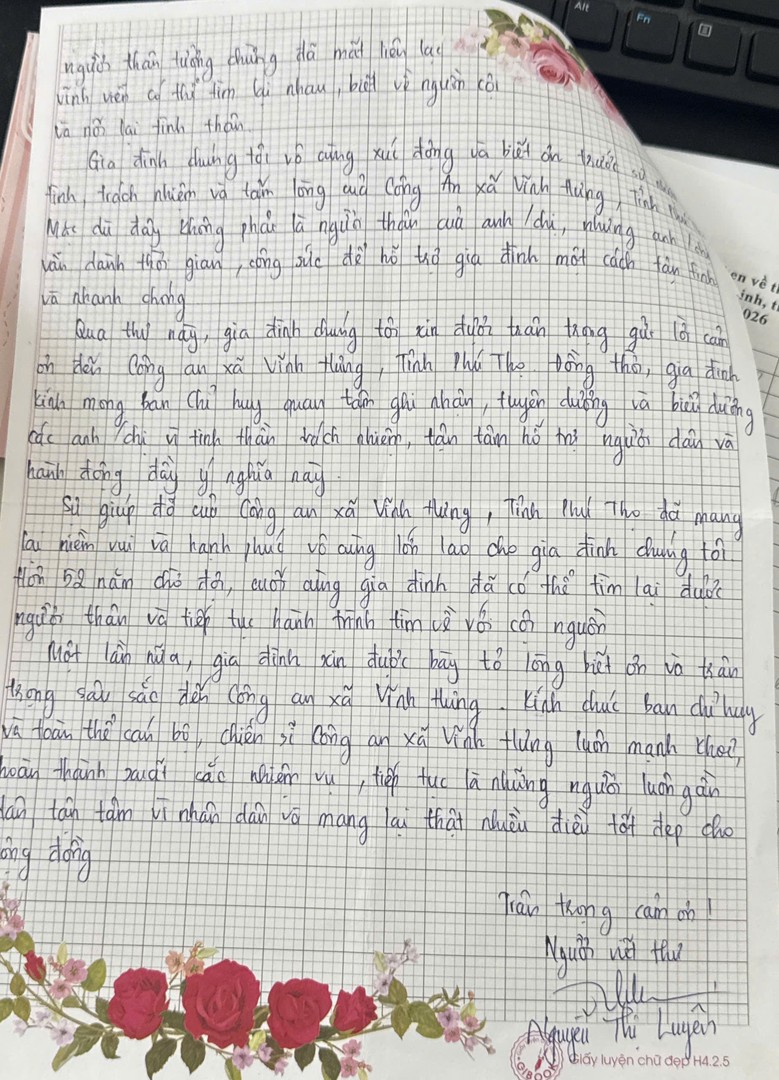 Alt
Fn
người thân tưởng chừng đã mất liên lạc
vĩnh viễn có thể tìm lại nhau, biết về nguồn cội
và nối lại tình thân.
Gia đình chúng tôi vô cùng xúc động và biết ơn trước sự
tình, trách nhiệm và tấm lòng của Công An xã Vĩnh Hưng, Tỉnh
Mặc dù đây không phải là người thân của anh/chị, nhưng anh/chị
vẫn dành thời gian, công sức để hỗ trợ gia đình một cách tận tình
và nhanh chóng
Qua thư này, gia đình chúng tôi xin được trân trọng gửi lời cảm
ơn đến Công an xã Vĩnh Hưng, Tỉnh Phú Thọ. Đồng thời, gia đình
kính mong ban Chỉ huy quan tâm ghi nhận, tuyên dương và biểu dương
các anh/chị vì tinh thần trách nhiệm, tận tâm hỗ trợ người dân và
hành động đầy ý nghĩa này.
Sự giúp đỡ của Công an xã Vĩnh Hưng, Tỉnh Phú Thọ đã mang
lại niềm vui và hạnh phúc vô cùng lớn lao cho gia đình chúng tôi.
Hơn 52 năm chờ đợi, cuối cùng gia đình đã có thể tìm lại được
người thân và tiếp tục hành trình tìm về với cội nguồn
Một lần nữa, gia đình xin được bày tỏ lòng biết ơn và trân
trọng sâu sắc đến Công an xã Vĩnh Hưng. Kính chúc ban chỉ huy
và toàn thể cán bộ, chiến sĩ Công an xã Vĩnh Hưng luôn mạnh khoẻ,
hoàn thành xuất sắc nhiệm vụ, tiếp tục là những người luôn gần
dân, tận tâm vì nhân dân và mang lại thật nhiều điều tốt đẹp cho
ộng đồng
Trân trọng cảm ơn!
Người viết thư
Nguyễn Thị Luyên
Giấy luyện chữ đẹp H4.2.5
en về t
ỉnh, t
026